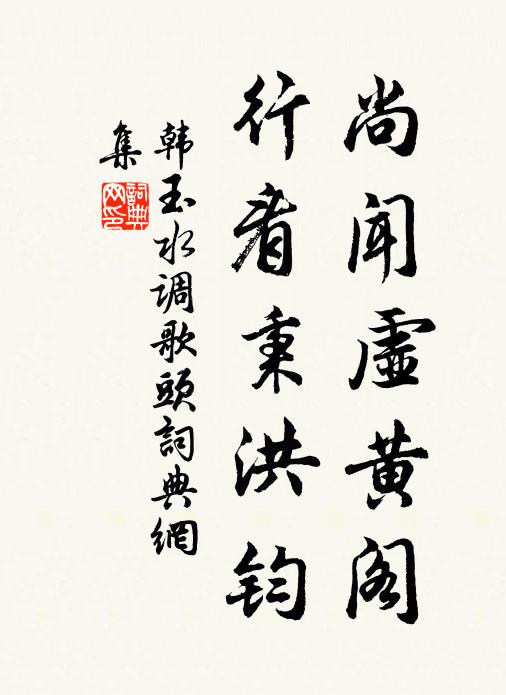 尚闻虚黄阁
行看秉洪钧
韩玉水调歌头詞典網
集
詞典网印